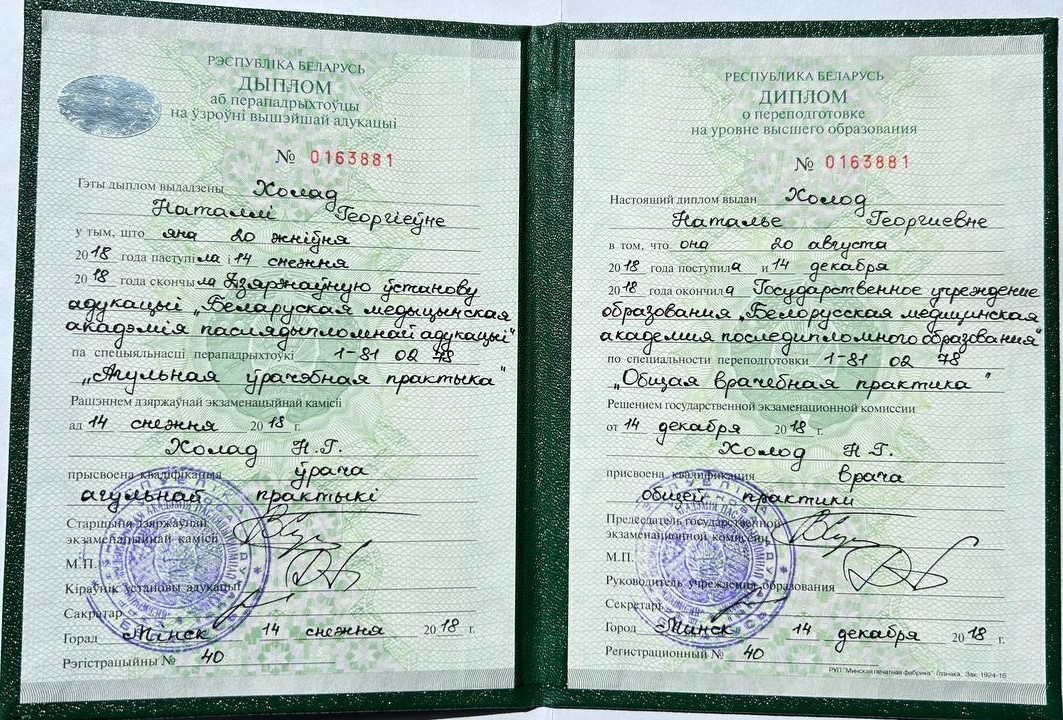 РЭСПУБЛІКА БЕЛАРУСЬ
ДЫПЛОМ
аб перападрыхтоўцы
на ўзроўні вышэйшай адукацыі
№ 0163881
Гэты дыплом выдадзены Холад
Наталлі Георгіеўне
у тым, што яна 20 жніўня
2018 года паступіла і 14 снежня
2018 года скончыла Дзяржаўную ўстанову
адукацыі „Беларуская медыцынская
акадэмія паслядыпломнай адукацыі"
па спецыяльнасці перападрыхтоўкі 1-81 02 78
„Агульная ўрачэбная практыка"
Рашэннем дзяржаўнай экзаменацыйнай камісіі
ад 14 снежня 2018 г.
Холад Н.Г.
прысвоена кваліфікацыя ўрача
агульнай практыкі
Старшыня дзяржаўнай
экзаменацыйнай камісіі
М.П.
Кіраўнік установы адукацыі
Сакратар
Горад Мінск 14 снежня 2018 г.
Рэгістрацыйны № 40
РЕСПУБЛИКА БЕЛАРУСЬ
ДИПЛОМ
о переподготовке
на уровне высшего образования
№ 0163881
Настоящий диплом выдан Холод
Наталье Георгиевне
в том, что она 20 августа
2018 года поступила и 14 декабря
2018 года окончила Государственное учреждение
образования „Белорусская медицинская
академия последипломного образования"
по специальности переподготовки 1-81 02 78
„Общая врачебная практика"
Решением государственной экзаменационной комиссии
от 14 декабря 2018 г.
Холод Н.Г.
присвоена квалификация врача
общей практики
Председатель государственной
экзаменационной комиссии
М.П.
Руководитель учреждения образования
Секретарь
Город Минск 14 декабря 2018 г.
Регистрационный № 40
РУП "Минская печатная фабрика" Гознака. Зак. 1924-16